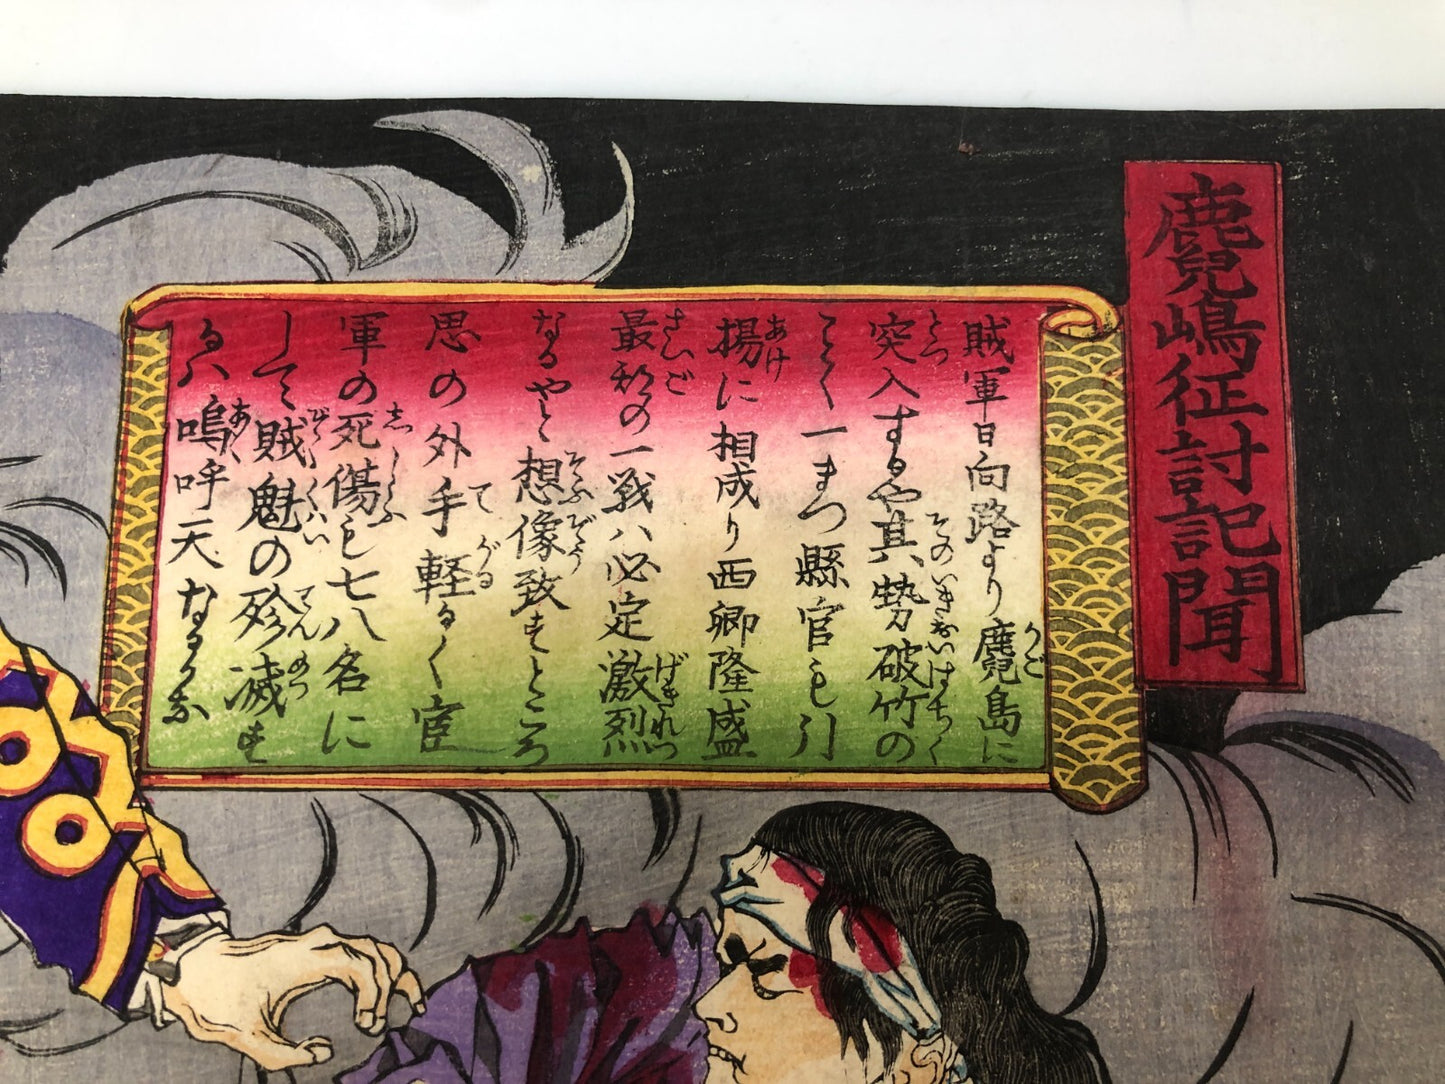 鹿児嶋征討記聞
賊軍日向路より鹿児島に
突入するや其勢破竹の
ごとく一まつ縣官も引
揚に相成り西郷隆盛
最初の一戦ハ必定激烈
なるやと想像致すところ
思の外手軽るく官
軍の死傷も七八名に
して賊魁の殄滅す
るハ嗚呼天なるかな